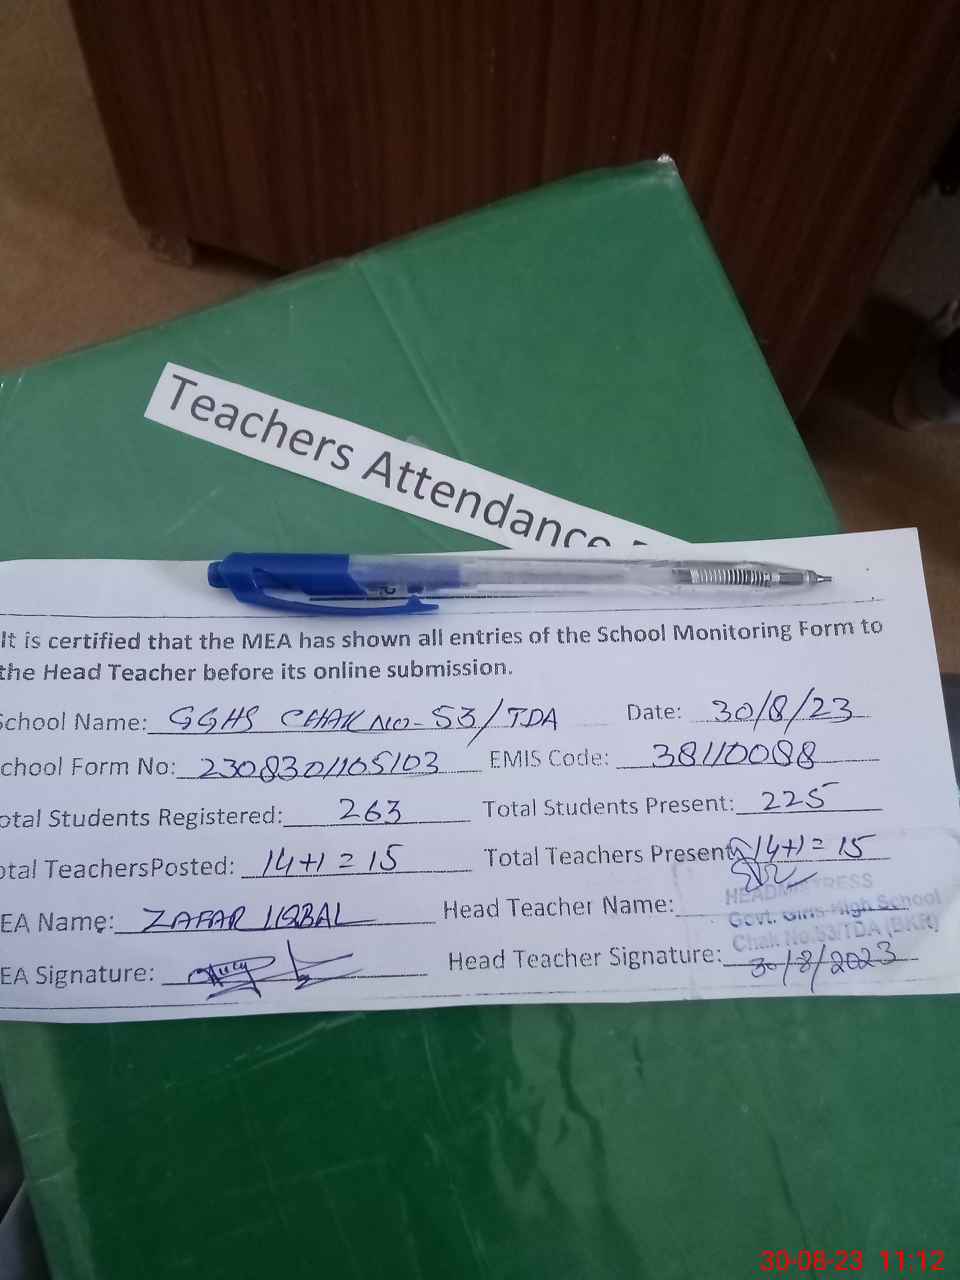 Teachers Attendance
It is certified that the MEA has shown all entries of the School Monitoring Form to
the Head Teacher before its online submission.
School Name: GGHS CHAK NO-53/TDA Date: 30/8/23
chool Form No: 2308301105103 EMIS Code: 38110088
otal Students Registered: 263 Total Students Present: 225
otal TeachersPosted: 14+1=15 Total Teachers Present: 14+1=15
EA Name: ZAFAR IQBAL Head Teacher Name:
HEADMISTRESS
Govt. Girls High School
Chak No.53/TDA (BKR)
EA Signature: Head Teacher Signature: 30/8/2023
30-08-23 11:12